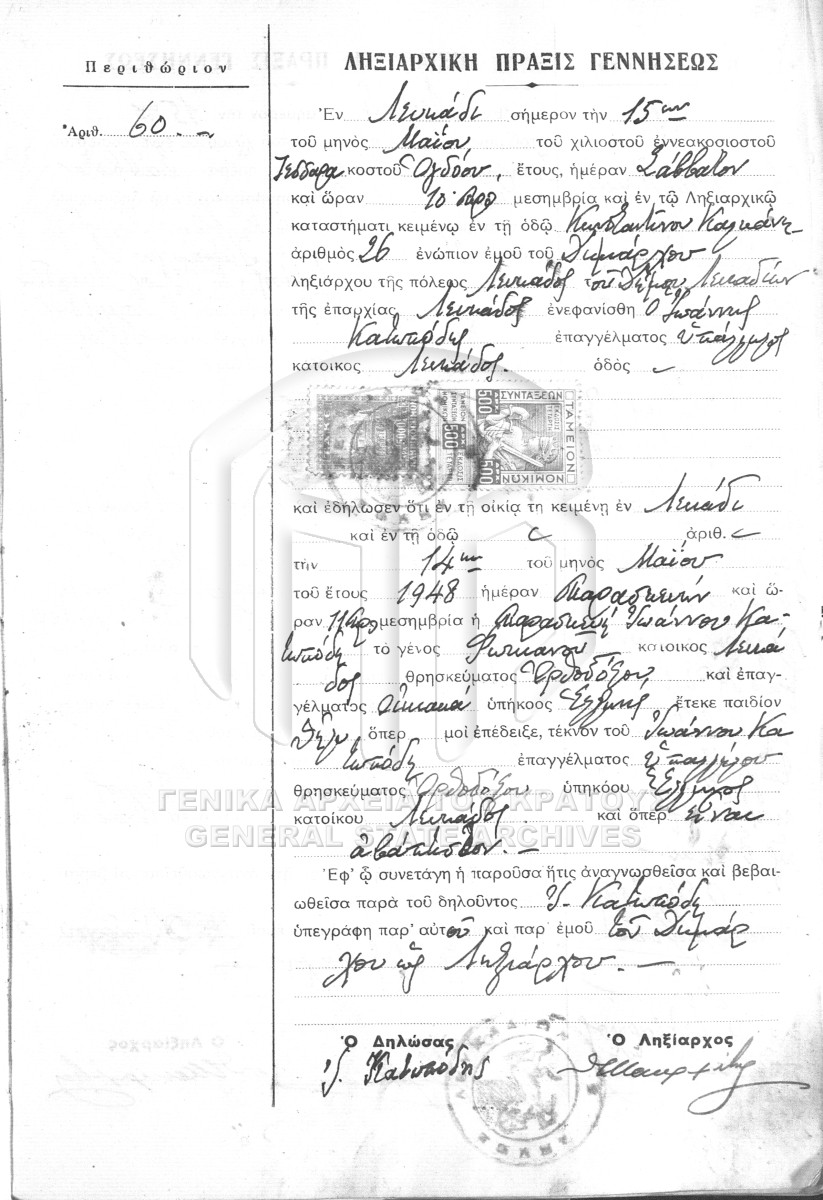 Περιθώριον
Ἀριθ. 60.-
ΛΗΞΙΑΡΧΙΚΗ ΠΡΑΞΙΣ ΓΕΝΝΗΣΕΩΣ
Ἐν Λευκάδι σήμερον τὴν 15ην
τοῦ μηνὸς Μαΐου τοῦ χιλιοστοῦ ἐννεακοσιοστοῦ
Τεσσαρακοστοῦ Ὀγδόου, ἔτους, ἡμέραν Σάββατον
καὶ ὥραν 10 προ μεσημβρία καὶ ἐν τῷ Ληξιαρχικῷ
καταστήματι κειμένῳ ἐν τῇ ὁδῷ Κωνσταντίνου
ἀριθμὸς 26 ἐνώπιον ἐμοῦ τοῦ Δημάρχου
ληξιάρχου τῆς πόλεως Λευκάδος τοῦ Δήμου Λευκαδίων
τῆς ἐπαρχίας Λευκάδος ἐνεφανίσθη ὁ Ἰωάννης
Κατωπόδης ἐπαγγέλματος ὑπάλληλος
κατοικος Λευκάδος. ὁδὸς
ΤΑΜΕΙΟΝ
ΣΥΝΤΑΞΕΩΝ
ΝΟΜΙΚΩΝ
500
500
καὶ ἐδήλωσεν ὅτι ἐν τῇ οἰκίᾳ τη κειμένῃ ἐν Λευκάδι
καὶ ἐν τῇ ὁδῷ ἀριθ.
τὴν 14ην τοῦ μηνὸς Μαΐου
τοῦ ἔτους 1948 ἡμέραν Παρασκευήν καὶ ὥ-
ραν 11 προ μεσημβρία ἡ Παρασκευὴ Ἰωάννου Κα-
τωπόδη τὸ γένος κατοικος Λευκά
δος θρησκεύματος Ὀρθοδόξου καὶ ἐπαγ-
γέλματος οἰκιακά ὑπήκοος Ἑλληνίς ἔτεκε παιδίον
θῆλυ, ὅπερ μοὶ ἐπέδειξε, τέκνον τοῦ Ἰωάννου Κα
τωπόδη ἐπαγγέλματος ὑπαλλήλου
θρησκεύματος Ὀρθοδόξου ὑπηκόου Ἕλληνος
κατοίκου Λευκάδος καὶ ὅπερ εἶναι
ἀβάπτιστον.-
Ἐφ' ᾧ συνετάγη ἡ παροῦσα ἥτις ἀναγνωσθεῖσα καὶ βεβαι-
ωθεῖσα παρὰ τοῦ δηλοῦντος Ἰ. Κατωπόδη
ὑπεγράφη παρ' αὐτοῦ καὶ παρ' ἐμοῦ τοῦ Δημάρ
χου ὡς Ληξιάρχου.-
Ὁ Δηλώσας Ὁ Ληξίαρχος
Ἰ. Κατωπόδης
ΓΕΝΙΚΑ ΑΡΧΕΙΑ ΤΟΥ ΚΡΑΤΟΥΣ
GENERAL STATE ARCHIVES